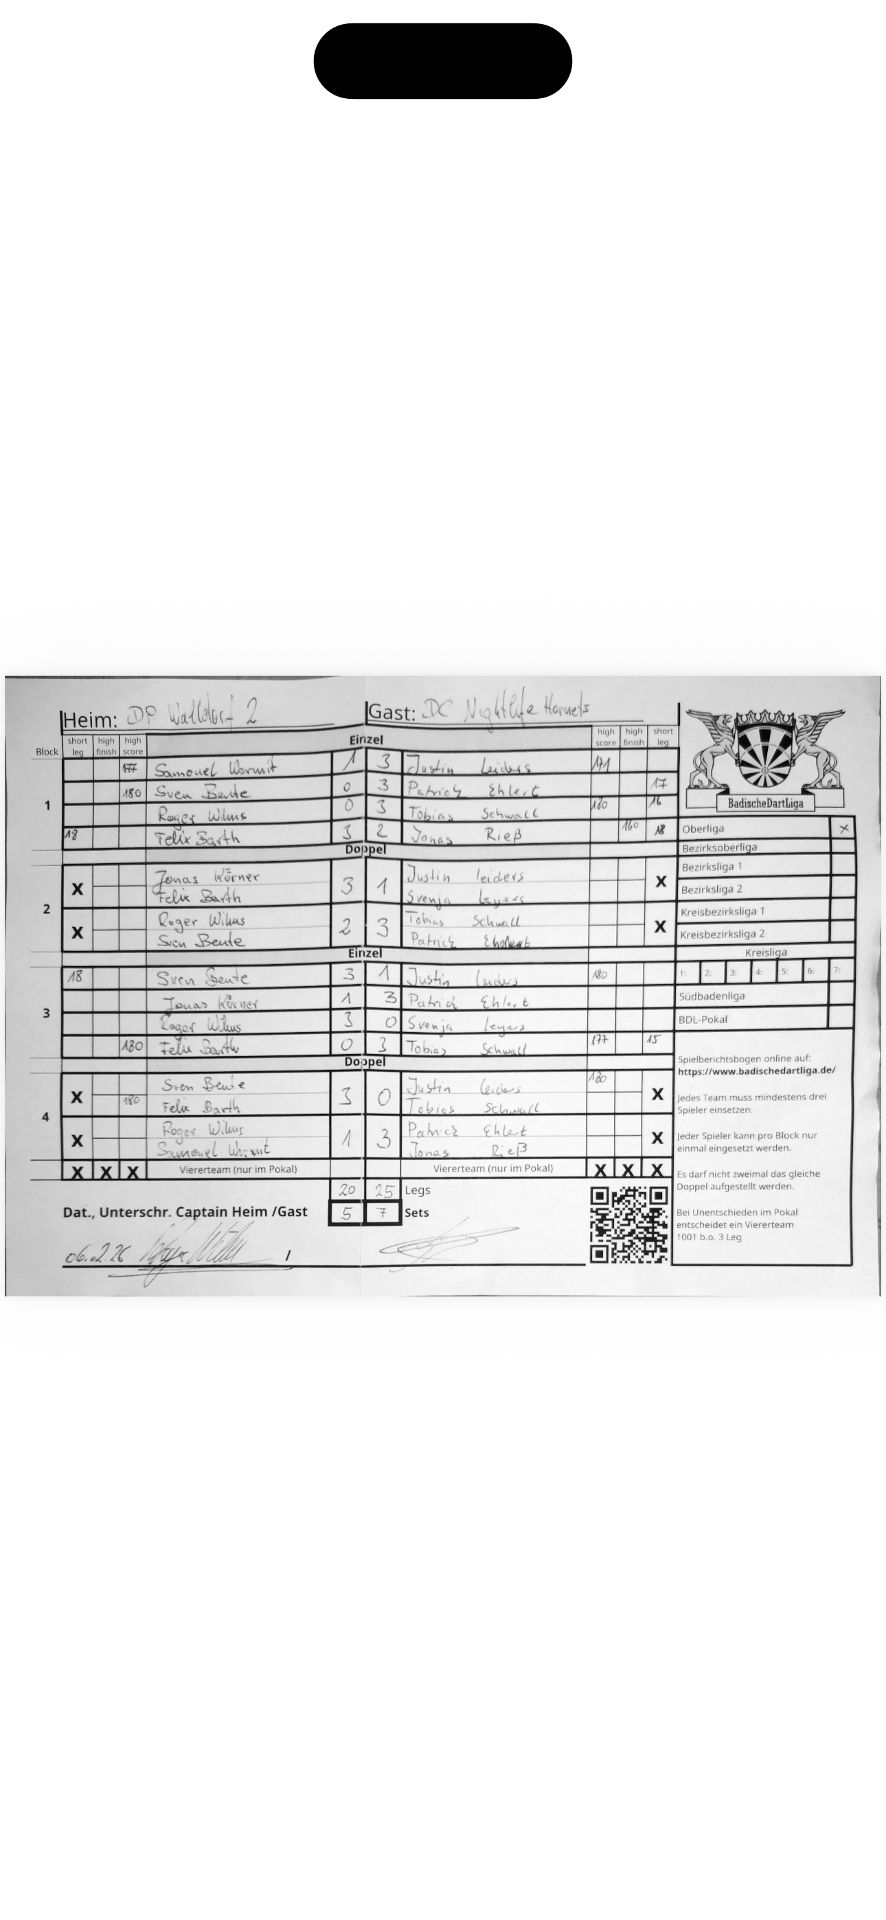 Heim: DP Walldorf 2 Gast: DC Nightlife Hornets
Block short leg high finish high score Einzel high score high finish short leg
1
177 Samouel Wormit 1 3 Justin Leiders 171
180 Sven Beute 0 3 Patrick Ehlert 17
Roger Wilms 0 3 Tobias Schwall 180 16
18 Felix Barth 3 2 Jonas Rieß 160 18
Doppel
2
X Jonas Körner 3 1 Justin leiders X
Felix Barth Svenja Leyers
X Roger Wilms 2 3 Tobias Schwall X
Sven Beute Patrick
Einzel
3
18 Sven Beute 3 1 Justin Leiders 180
Jonas Körner 1 3 Patrick Ehlert
Roger Wilms 3 0 Svenja Leyers
180 Felix Barth 0 3 Tobias Schwall 177 15
Doppel
4
X Sven Beute 3 0 Justin Leiders 180 X
180 Felix Barth Tobias Schwall
X Roger Wilms 1 3 Patrick Ehlert X
Samouel Wormit Jonas Rieß
X X X Viererteam (nur im Pokal) Viererteam (nur im Pokal) X X X
20 25 Legs
Dat., Unterschr. Captain Heim /Gast 5 7 Sets
06.02.26
BadischeDartLiga
Oberliga X
Bezirksoberliga
Bezirksliga 1
Bezirksliga 2
Kreisbezirksliga 1
Kreisbezirksliga 2
Kreisliga
1: 2: 3: 4: 5: 6: 7:
Südbadenliga
BDL-Pokal
Spielberichtsbogen online auf:
https://www.badischedartliga.de/
Jedes Team muss mindestens drei
Spieler einsetzen.
Jeder Spieler kann pro Block nur
einmal eingesetzt werden.
Es darf nicht zweimal das gleiche
Doppel aufgestellt werden.
Bei Unentschieden im Pokal
entscheidet ein Viererteam
1001 b.o. 3 Leg